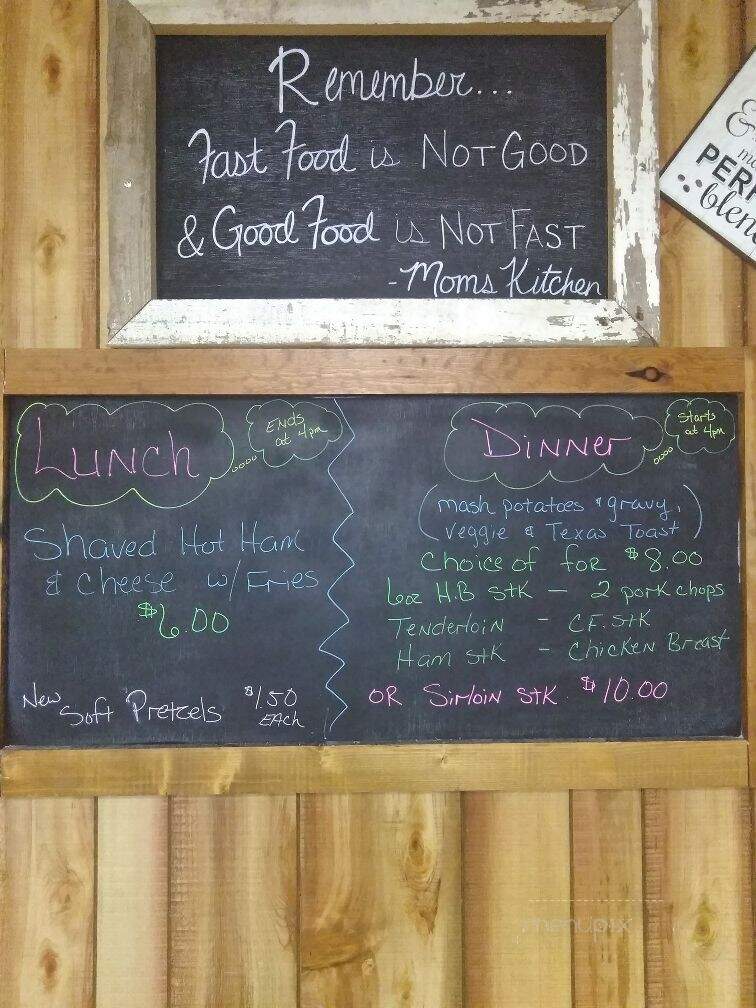 Remember...
Fast Food is NOT GOOD
& Good Food is NOT FAST
- Moms Kitchen
&
PERF
blen
Lunch
Ends
at 4pm
Shaved Hot Ham
& cheese w/ Fries
$6.00
New Soft Pretzels $1.50
EACH
Dinner
Starts
at 4pm
(mash potatoes & gravy,
veggie & Texas Toast)
Choice of for $8.00
6oz H.B Stk - 2 pork chops
Tenderloin - CF. Stk
Ham Stk - Chicken Breast
OR Sirloin Stk $10.00
menupix